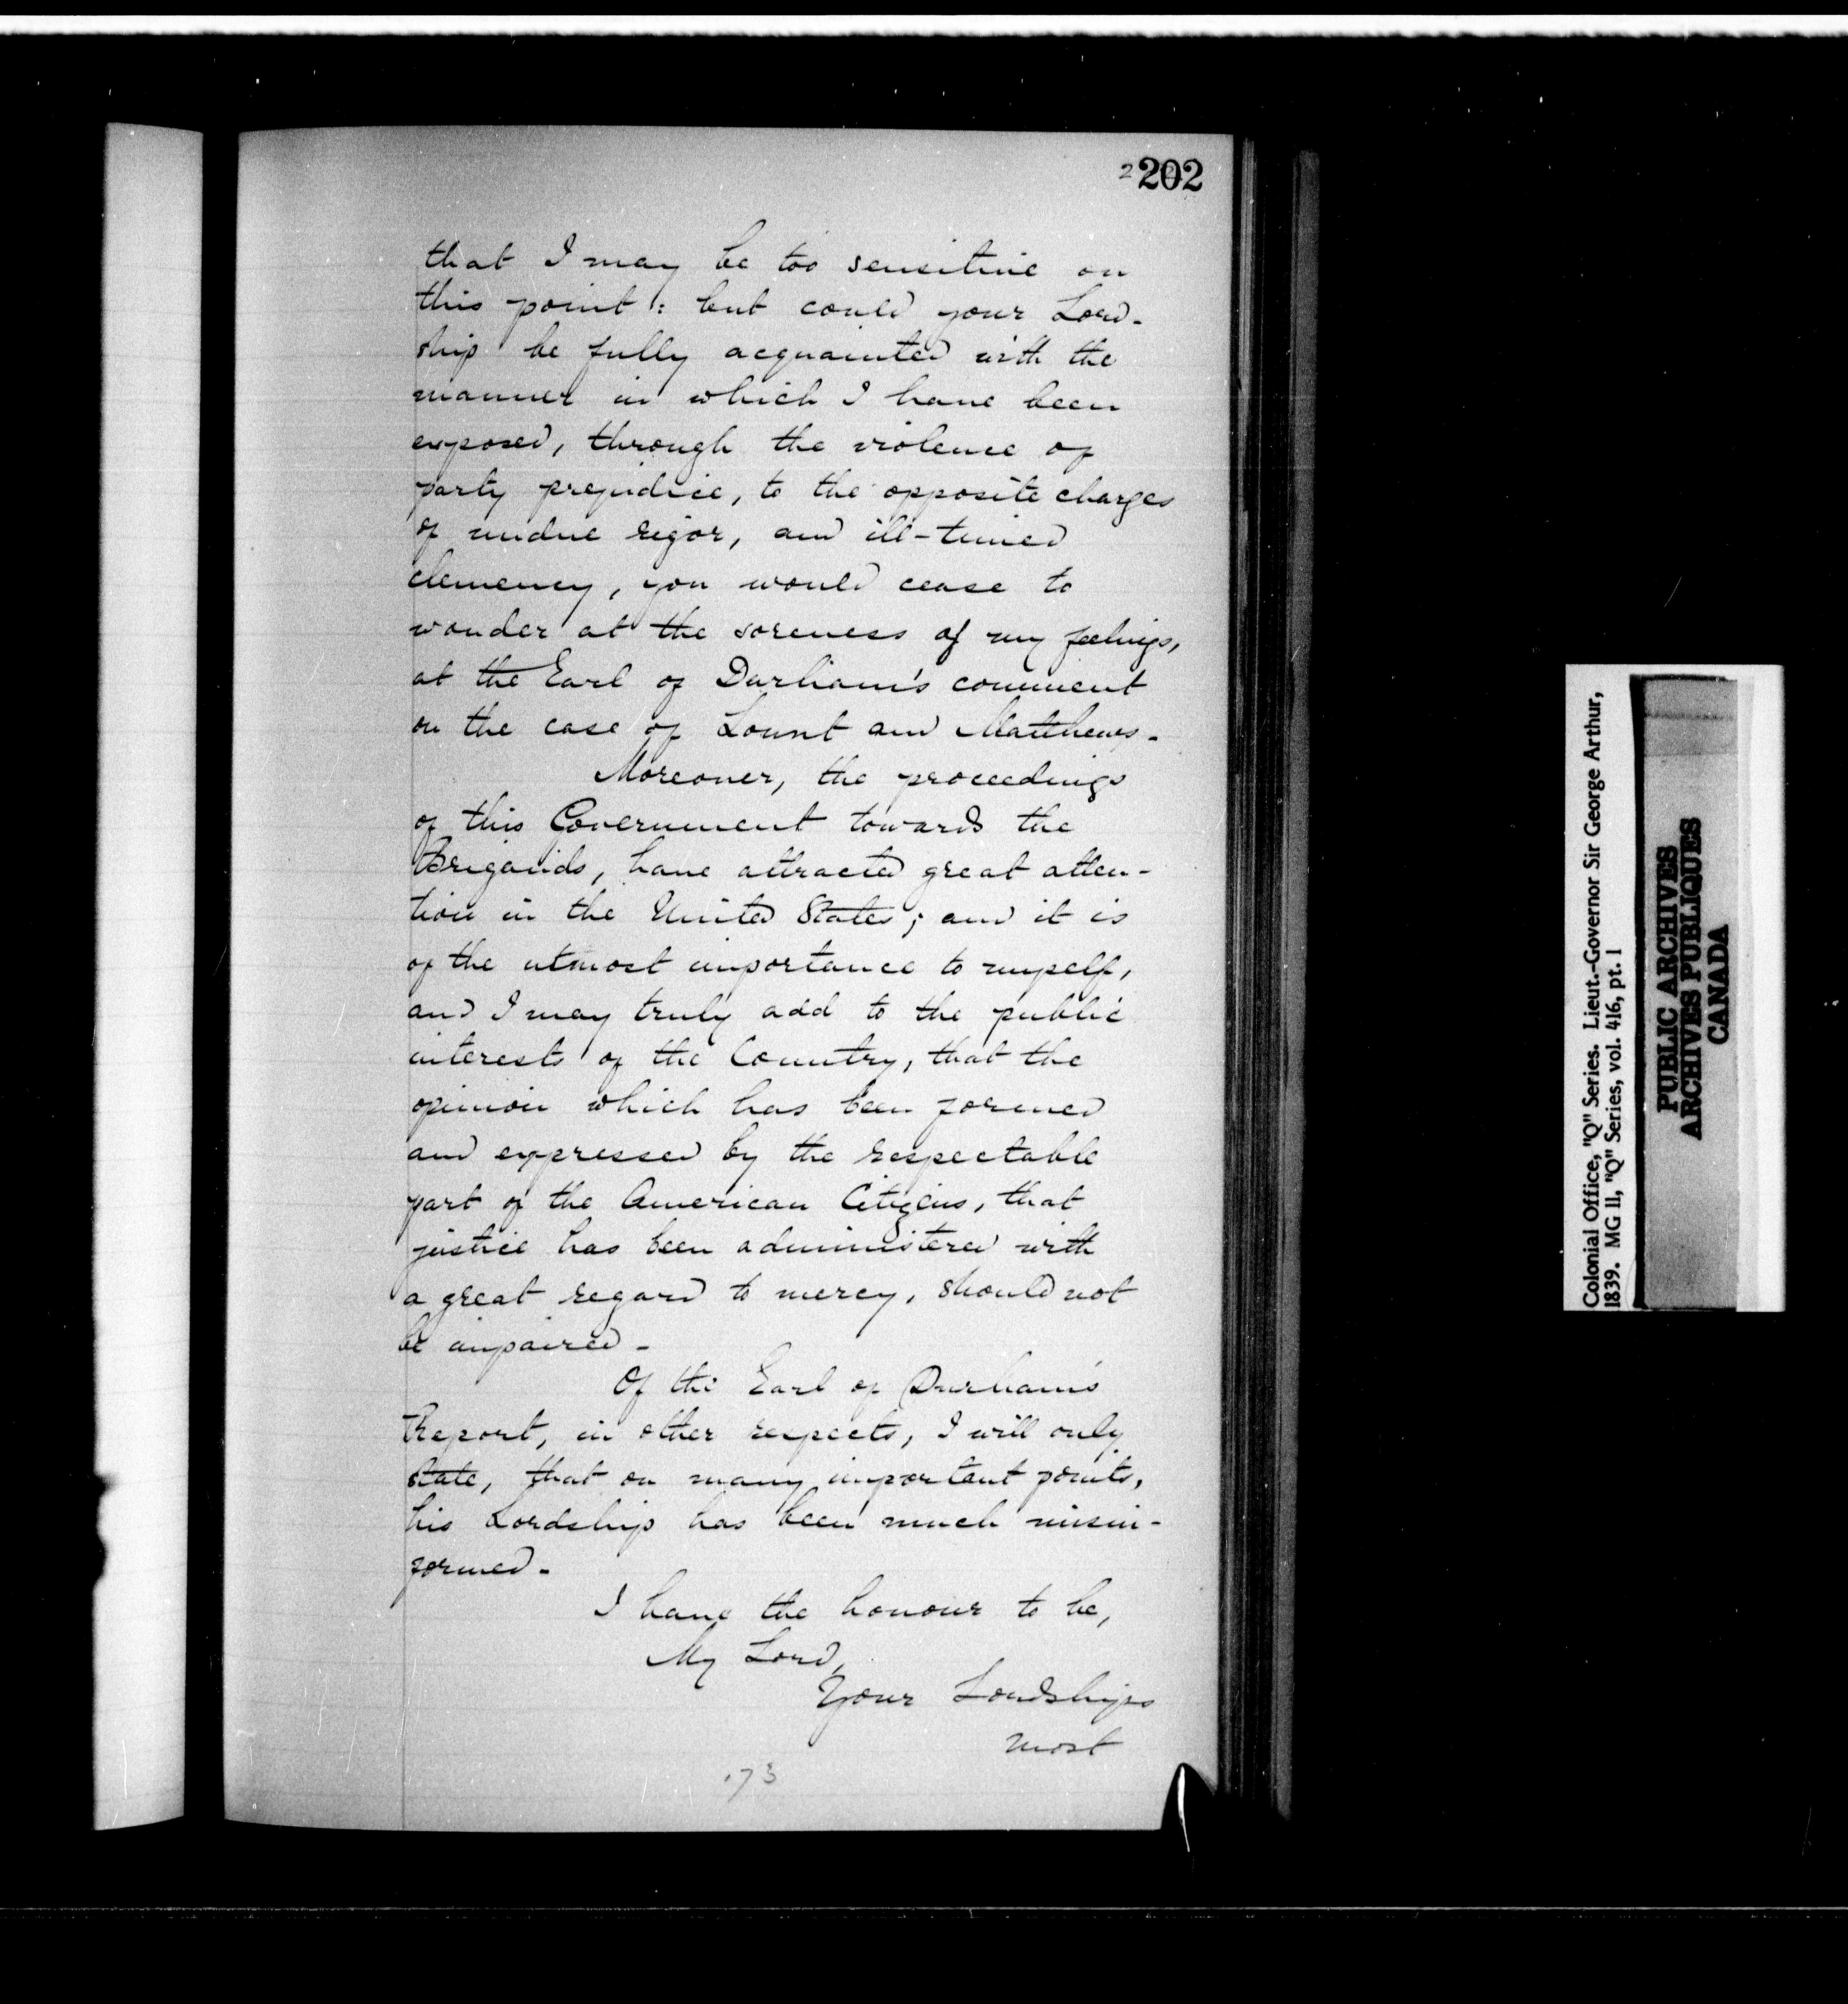 2202
that I may be too sensitive on
this point: but could your Lord-
ship be fully acquainted with the
manner in which I have been
exposed, through the violence of
party prejudice, to the opposite charges
of undue rigor, and ill-timed
clemency, you would cease to
wonder at the soreness of my feelings,
at the Earl of Durham's comment
on the case of Lount and Matthews-
Moreover, the proceedings
of this Government towards the
Brigands, have attracted great atten-
tion in the United States; and it is
of the utmost importance to myself,
and I may truly add to the public
interests of the Country, that the
opinion which has been formed
and expressed by the respectable
part of the American Citizens, that
justice has been administered with
a great regard to mercy, should not
be impaired-
Of the Earl of Durham's
Report, in other respects, I will only
state, that on many important points,
his Lordship has been much misin-
formed-
I have the honour to be,
My Lord,
Your Lordships
most
173
Colonial Office, "Q" Series. Lieut.-Governor Sir George Arthur,
1839. MG 11, "Q" Series, vol. 416, pt. 1
PUBLIC ARCHIVES
ARCHIVES PUBLIQUES
CANADA